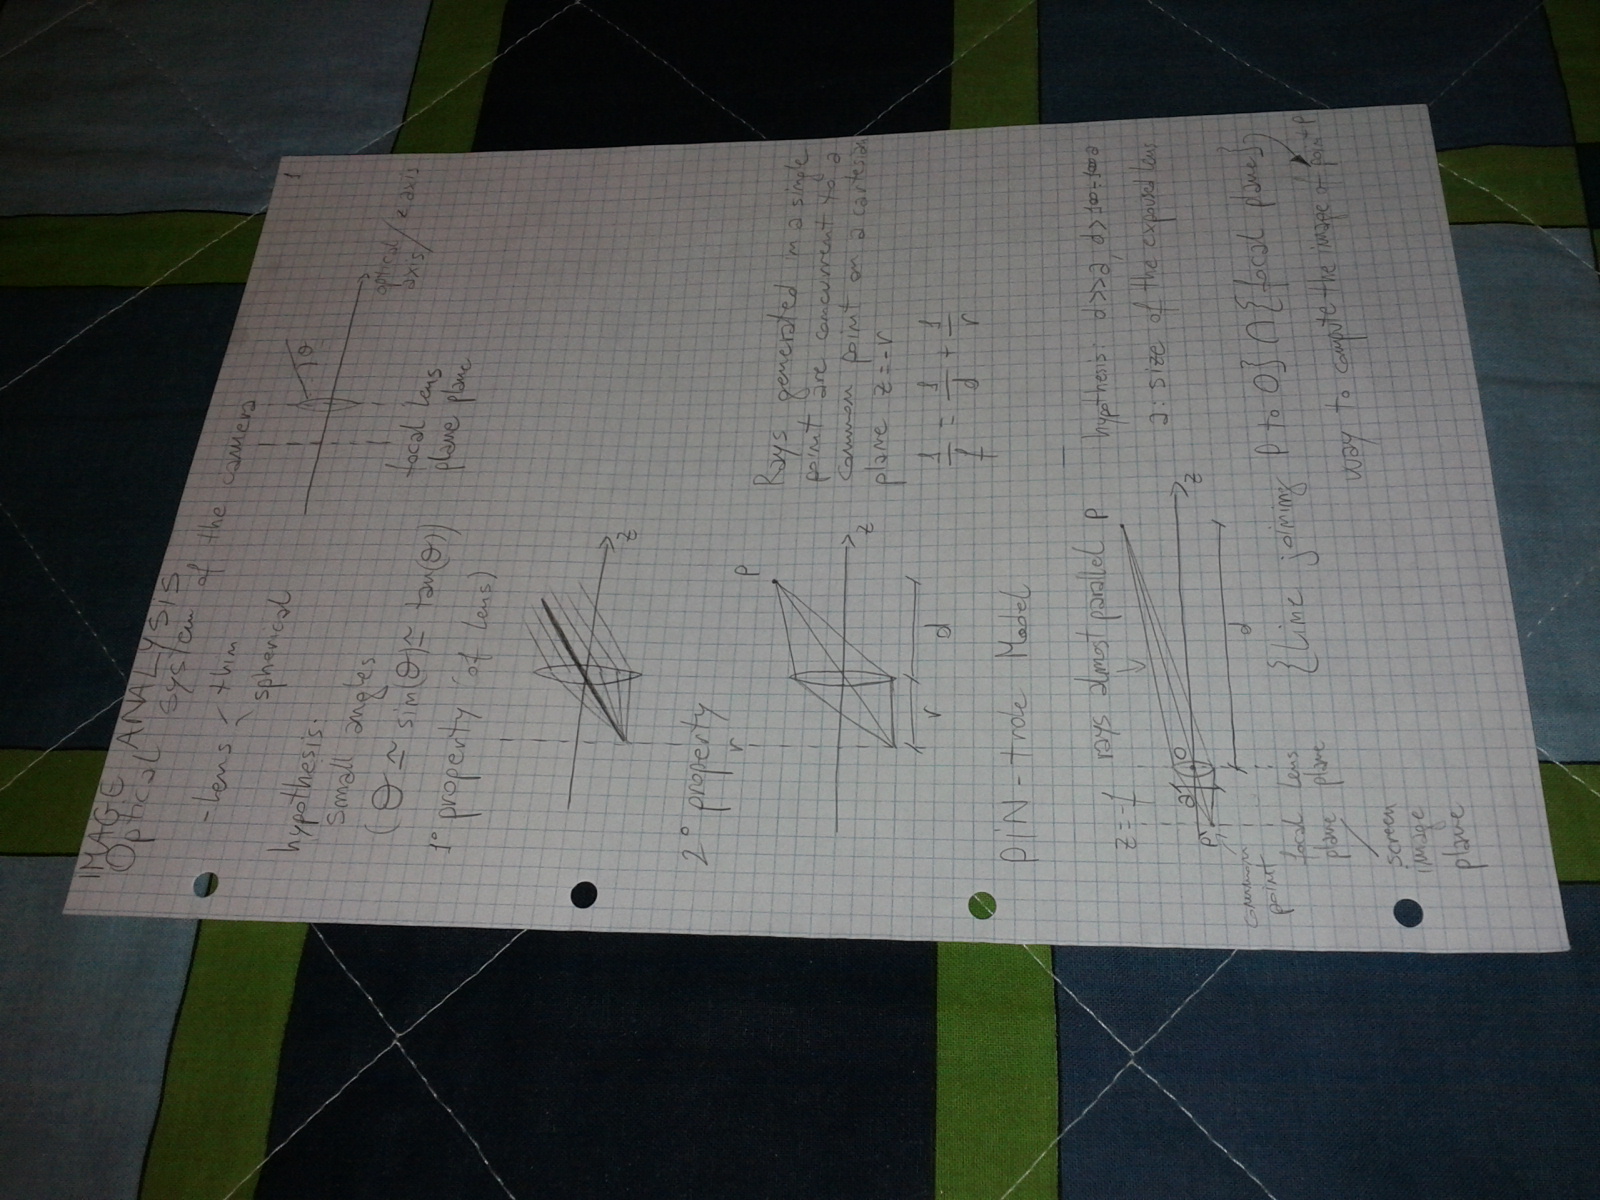 1
IMAGE ANALYSIS
Optical system of the camera
- Lens < thin
spherical
hypothesis:
small angles
(θ ≃ sin(θ) ≃ tan(θ))
θ
optical / z axis
axis
focal lens
plane plane
1° property (of lens)
z
2° property
r
P
z
r d
Rays generated in a single
point are concurrent to a
common point on a cartesian
plane z=-r
1/f = 1/d + 1/r
PIN-hole Model
z=-f rays almost parallel P
hypothesis: d>>a, d>100÷1000a
a: size of the exposed lens
a O
z
P'
d
common
point
focal lens
plane plane
screen
image
plane
{Line joining P to O} ∩ {focal plane}
way to compute the image of point P